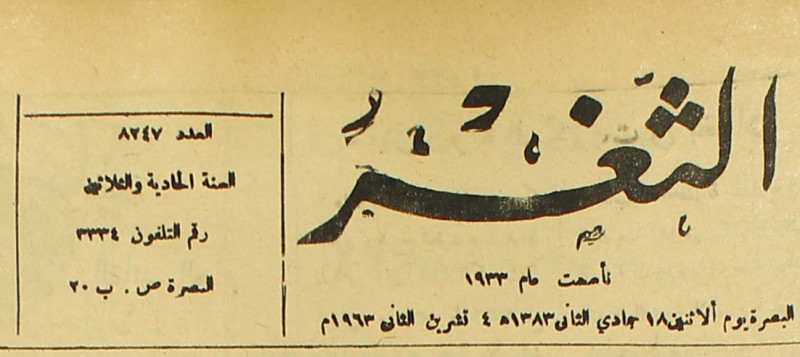 الثغر
تأسست عام ١٩٣٣
البصرة يوم ألاثنين ١٨ جمادي الثاني ١٣٨٣ھ ٤ تشرين الثاني ١٩٦٣م
العدد ٨٢٤٧
السنة الحادية والثلاثين
رقم التلفون ٣٣٣٤
البصرة ص . ب ٢٠